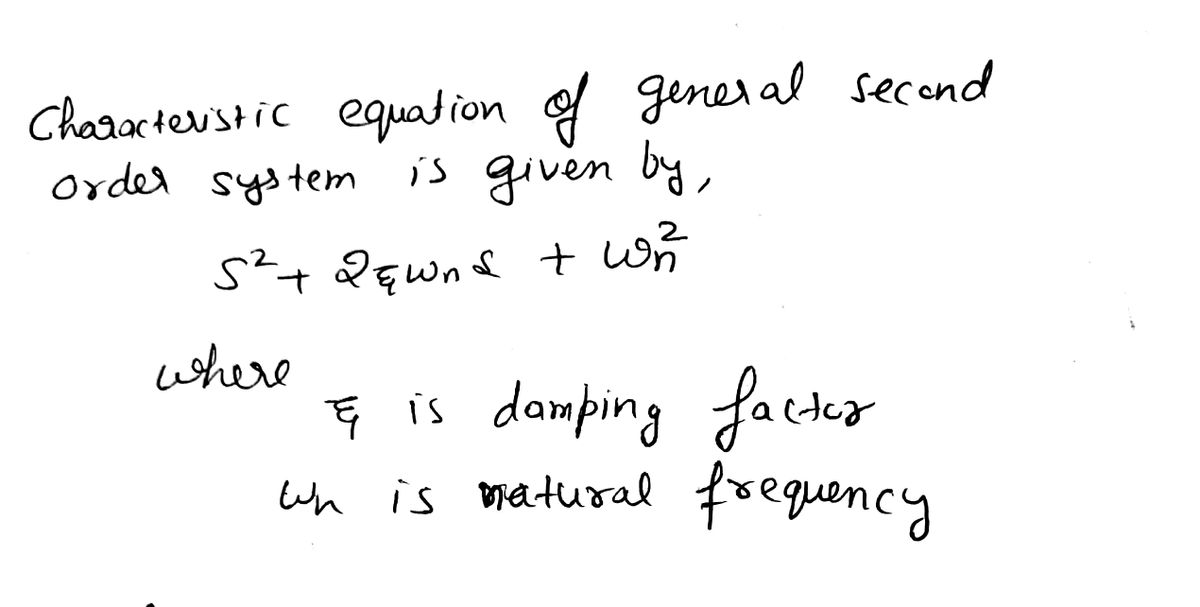 Characteristic equation of general second
order system is given by,
s² + 2ξωn s + ωn²
where
ξ is damping factor
ωn is natural frequency